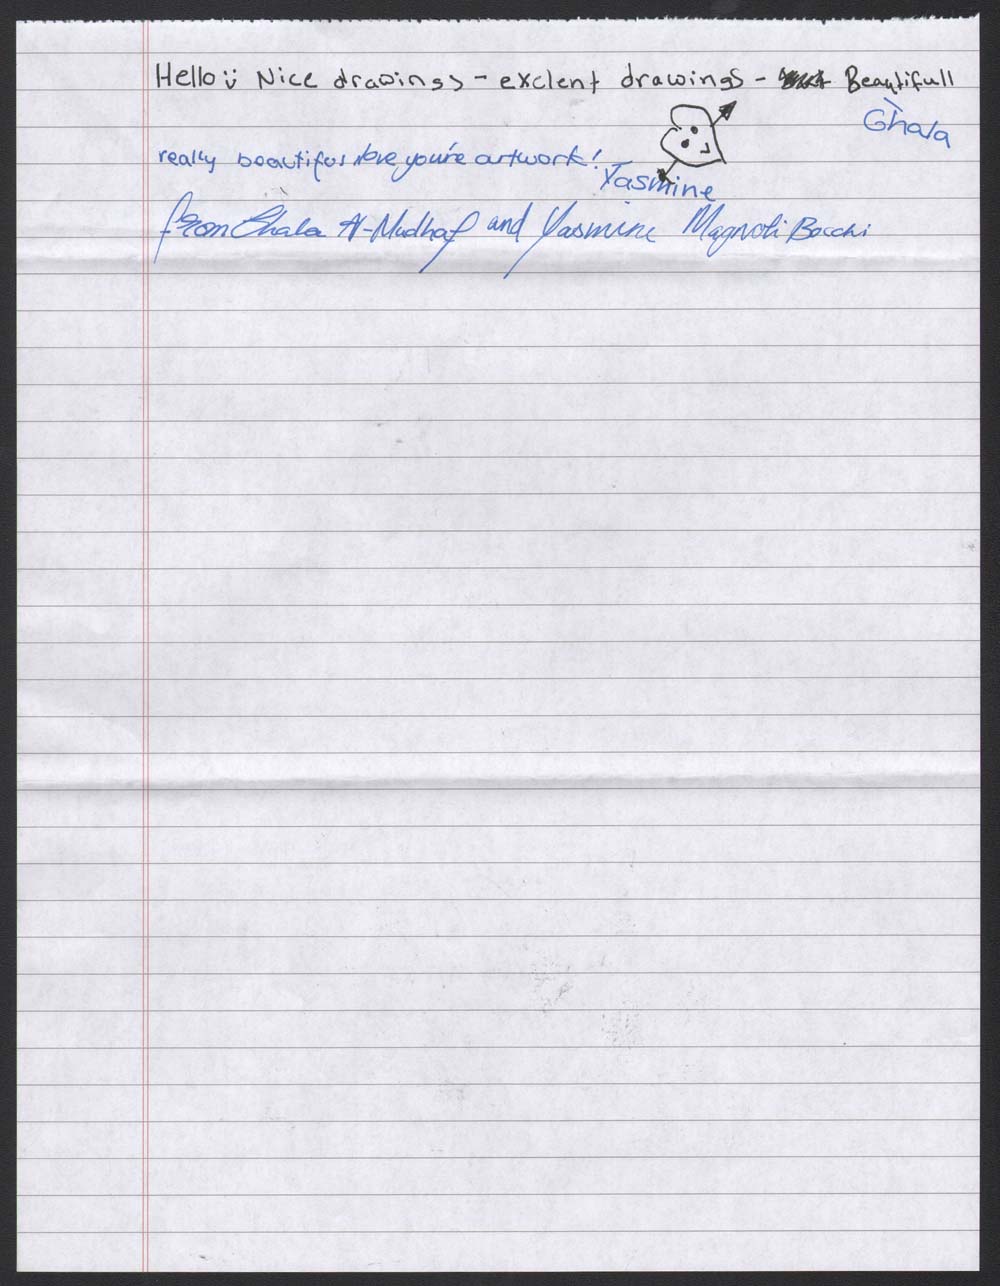 Hello :) Nice drawings - exclent drawings - Beautifull
Ghala
really beautiful love you're artwork!
Yasmine
from Ghala Al-Mudhaf and Yasmine Bocchi